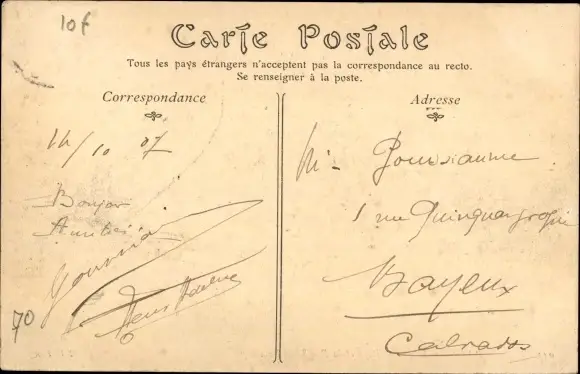 10f
Carte Postale
Tous les pays étrangers n'acceptent pas la correspondance au recto.
Se renseigner à la poste.
Correspondance
Adresse
14/10 07
Bonjour
Amitiés
70
M-
1 rue
Bayeux
Calvados